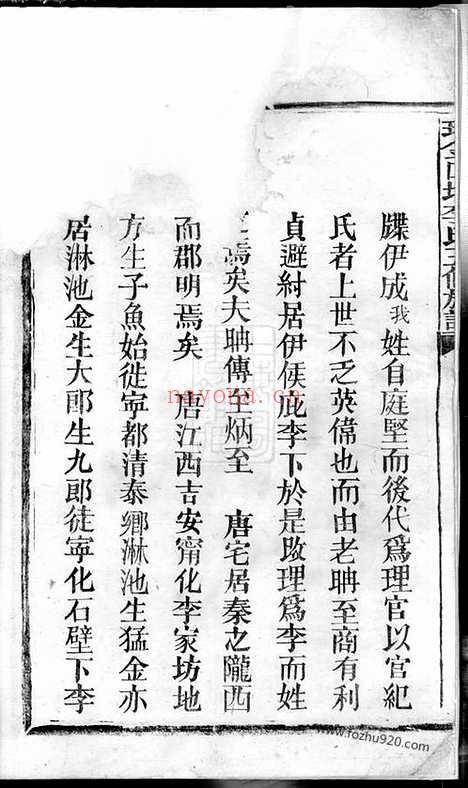 牒伊成我姓自庭堅而後代爲理官以官紀
氏者上世不乏英偉也而由老聃至商有利
貞避紂居伊侯庇李下於是改理爲李而姓
焉矣夫聃傳至炳至 唐宅居秦之隴西
而郡明焉矣 唐江西吉安甯化李家坊地
方生子魚始徙寧都清泰鄉淋池生猛金亦
居淋池金生大郎生九郎徒寧化石壁下李
nayona.cn
www.fozhu920.com